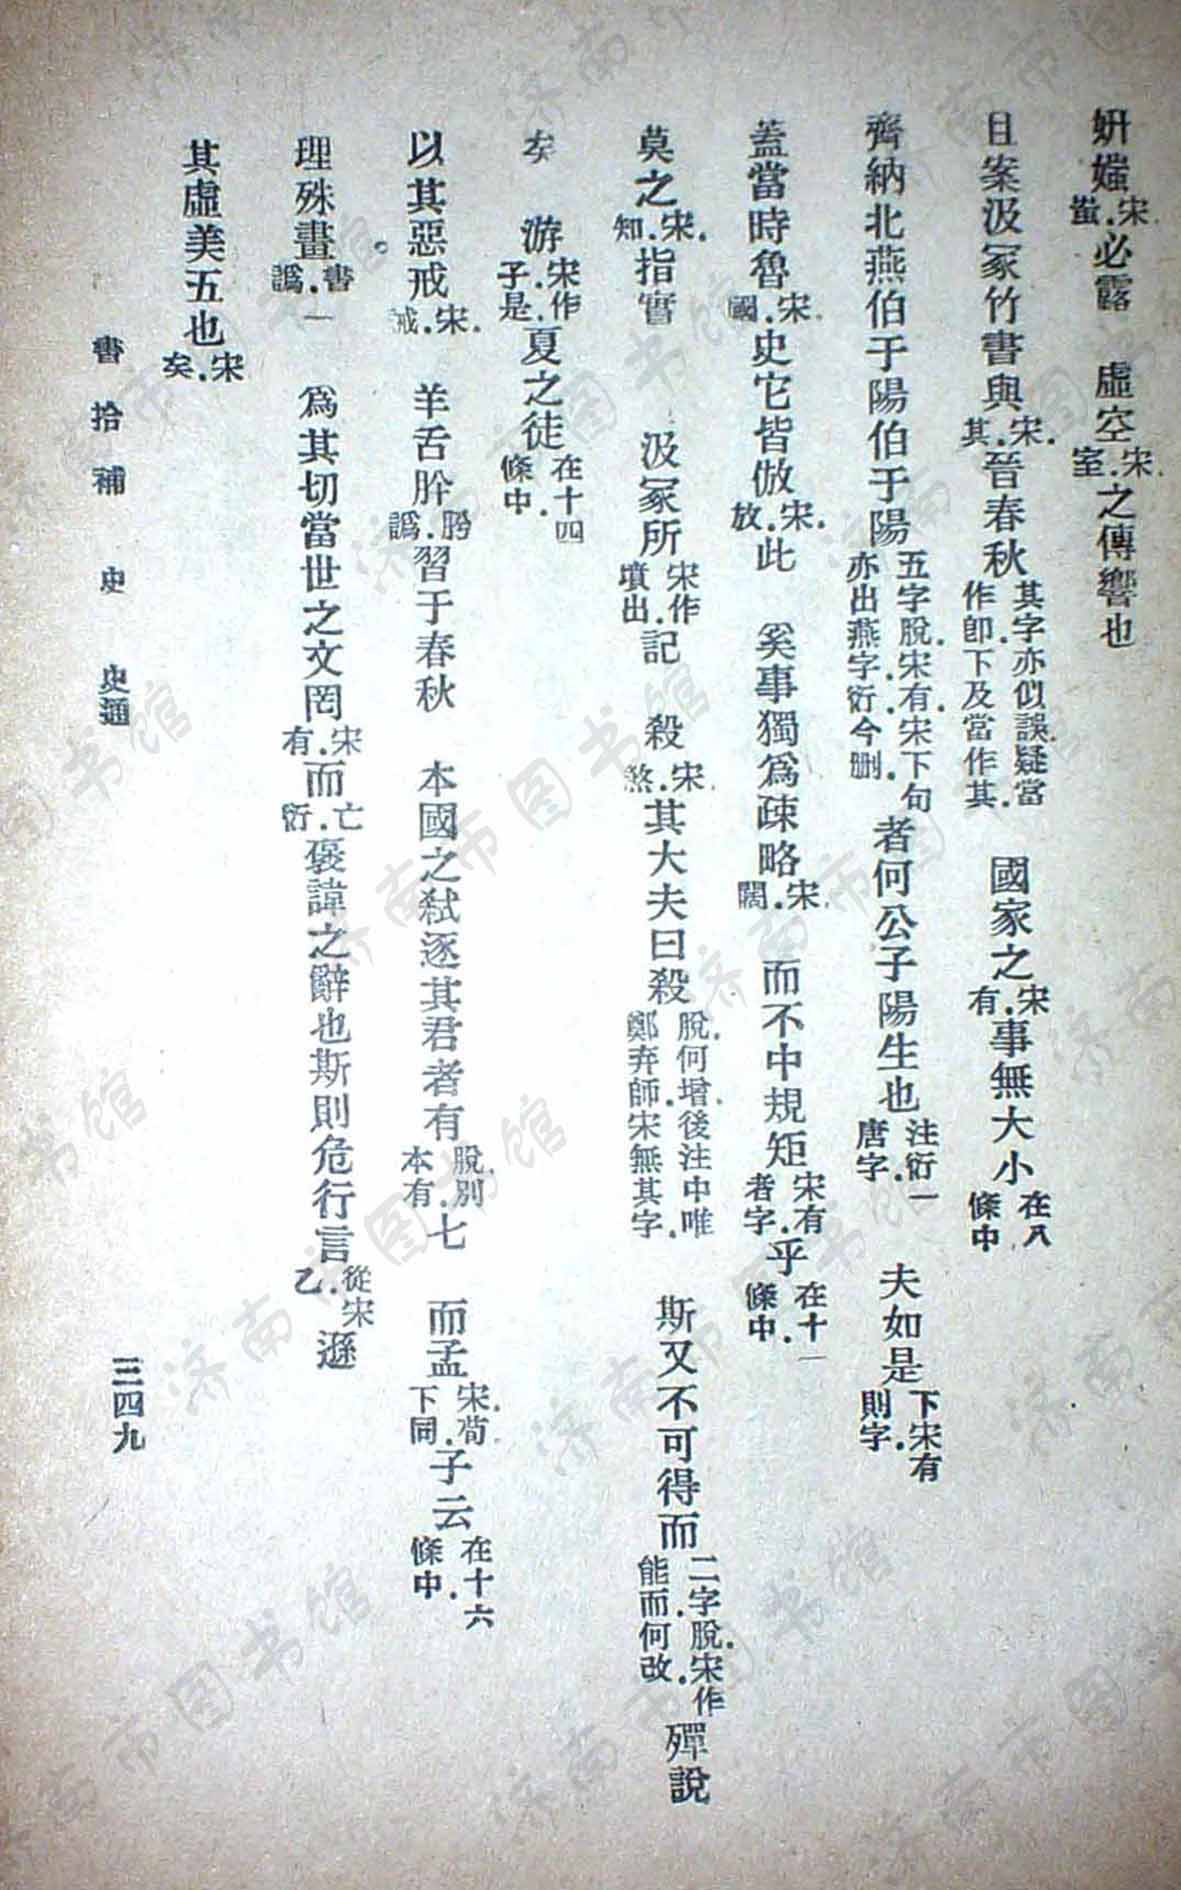 妍媸宋.蚩必露　虛空宋.室之傳響也
且案汲冢竹書與宋.其.晉春秋其字亦似誤.疑當作卽.下及當作其.　國家之宋.有事無大小在八條中.
齊納北燕伯于陽伯于陽五字脫.宋有.宋下句亦出燕字.衍.今刪.者何公子陽生也注衍一唐字.　夫如是下宋有則字.
蓋當時魯宋.國史它皆倣宋.放.此　奚事獨爲疎略宋.闊.而不中規矩宋有者字.乎在十一條中.
莫之宋.知.指實　汲冢所宋作墳出.記　殺宋.煞.其大夫曰殺脫.何增.後注中唯鄭弃師.宋無其字.　斯又不可得而二字脫.宋作能而.何改.殫說
矣　游宋作子是.夏之徒在十四條中.
以其惡戒宋.戒.　羊舌肸肹.譌.習于春秋　本國之弒逐其君者有脫.別本有.七　而孟宋.荀.下同.子云在十六條中.
理殊畫書.譌.一　爲其切當世之文罔宋.有.而亡.衍褒諱之辭也斯則危行言從宋乙.遜
其虛美五也宋.矣
書拾補　史　史通
三四九